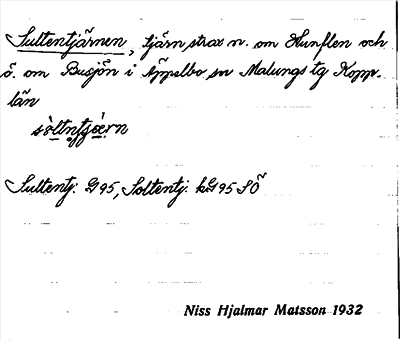 Sultentjärnen, tjärn, strax n. om Hunflen och
ö. om Busjön i Äppelbo sn Malungs tg Kopp.
län
sòltntjæ̀rn
Sultentj. G95, Soltentj. kG95 SÖ
Niss Hjalmar Matsson 1932